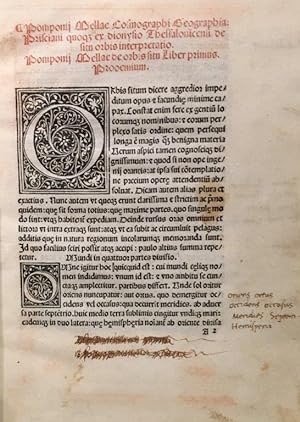 Pomponij Mellae Cosmographi Geographia:
Prisciani quoqz ex dionysio Thessalonicensi de
situ orbis interpretatio.
Pomponij Mellae de orbis situ Liber primus.
Prooemium.
Orbis situm dicere aggredior impe
ditum opus & facundiae minime ca
pax. Constat enim fere ex gentiū
locorumqz nominibus: & eorum per
plexo satis ordine: quem persequi
longa ē magis qz benigna materia
Verum aspici tamen cognosciqz di
gnissimum: & quod si non ope inge
nij orantis: at ipsa sui cōtemplatio
ne pretium operae attendentiū absoluat.
Dicam autem alias plura &
exactius. Nunc autem ut quaeqz erunt clarissima & strictim ac primo
quidem: quae sit forma totius: quae maximae partes, quo singulae modo
sint: utqz habitent̄ expediam. Deinde rursus oras omnium &
littora ut intra extraqz sunt: atqz ut ea subit ac circumluit pelagus:
additis quae in natura regionum incolarumqz memoranda sunt.
Id quo facilius sciri possit atqz accipi: paulo altius summa repetetur.
Mundi in quattuor partes diuisio.
Omne igitur hoc quicqd est: cui mundi coeliqz nomen
indidimus: unum id est: & uno ambitu se cunctaqz
amplectitur. partibus differt. Unde sol oritur
oriens nuncupatur: aut ortus. quo demergitur occidens
uel occasus: qua decurrit meridies. ab aduersa
parte septētrio. huic medio terra sublimis cingitur undiqz mari:
eodemqz in duo latera: quae hemisphaeria nolant̄ ab oriente diuisa
oriens ortus
occidens occasus
Meridies Septen
Hemisperia
A 2